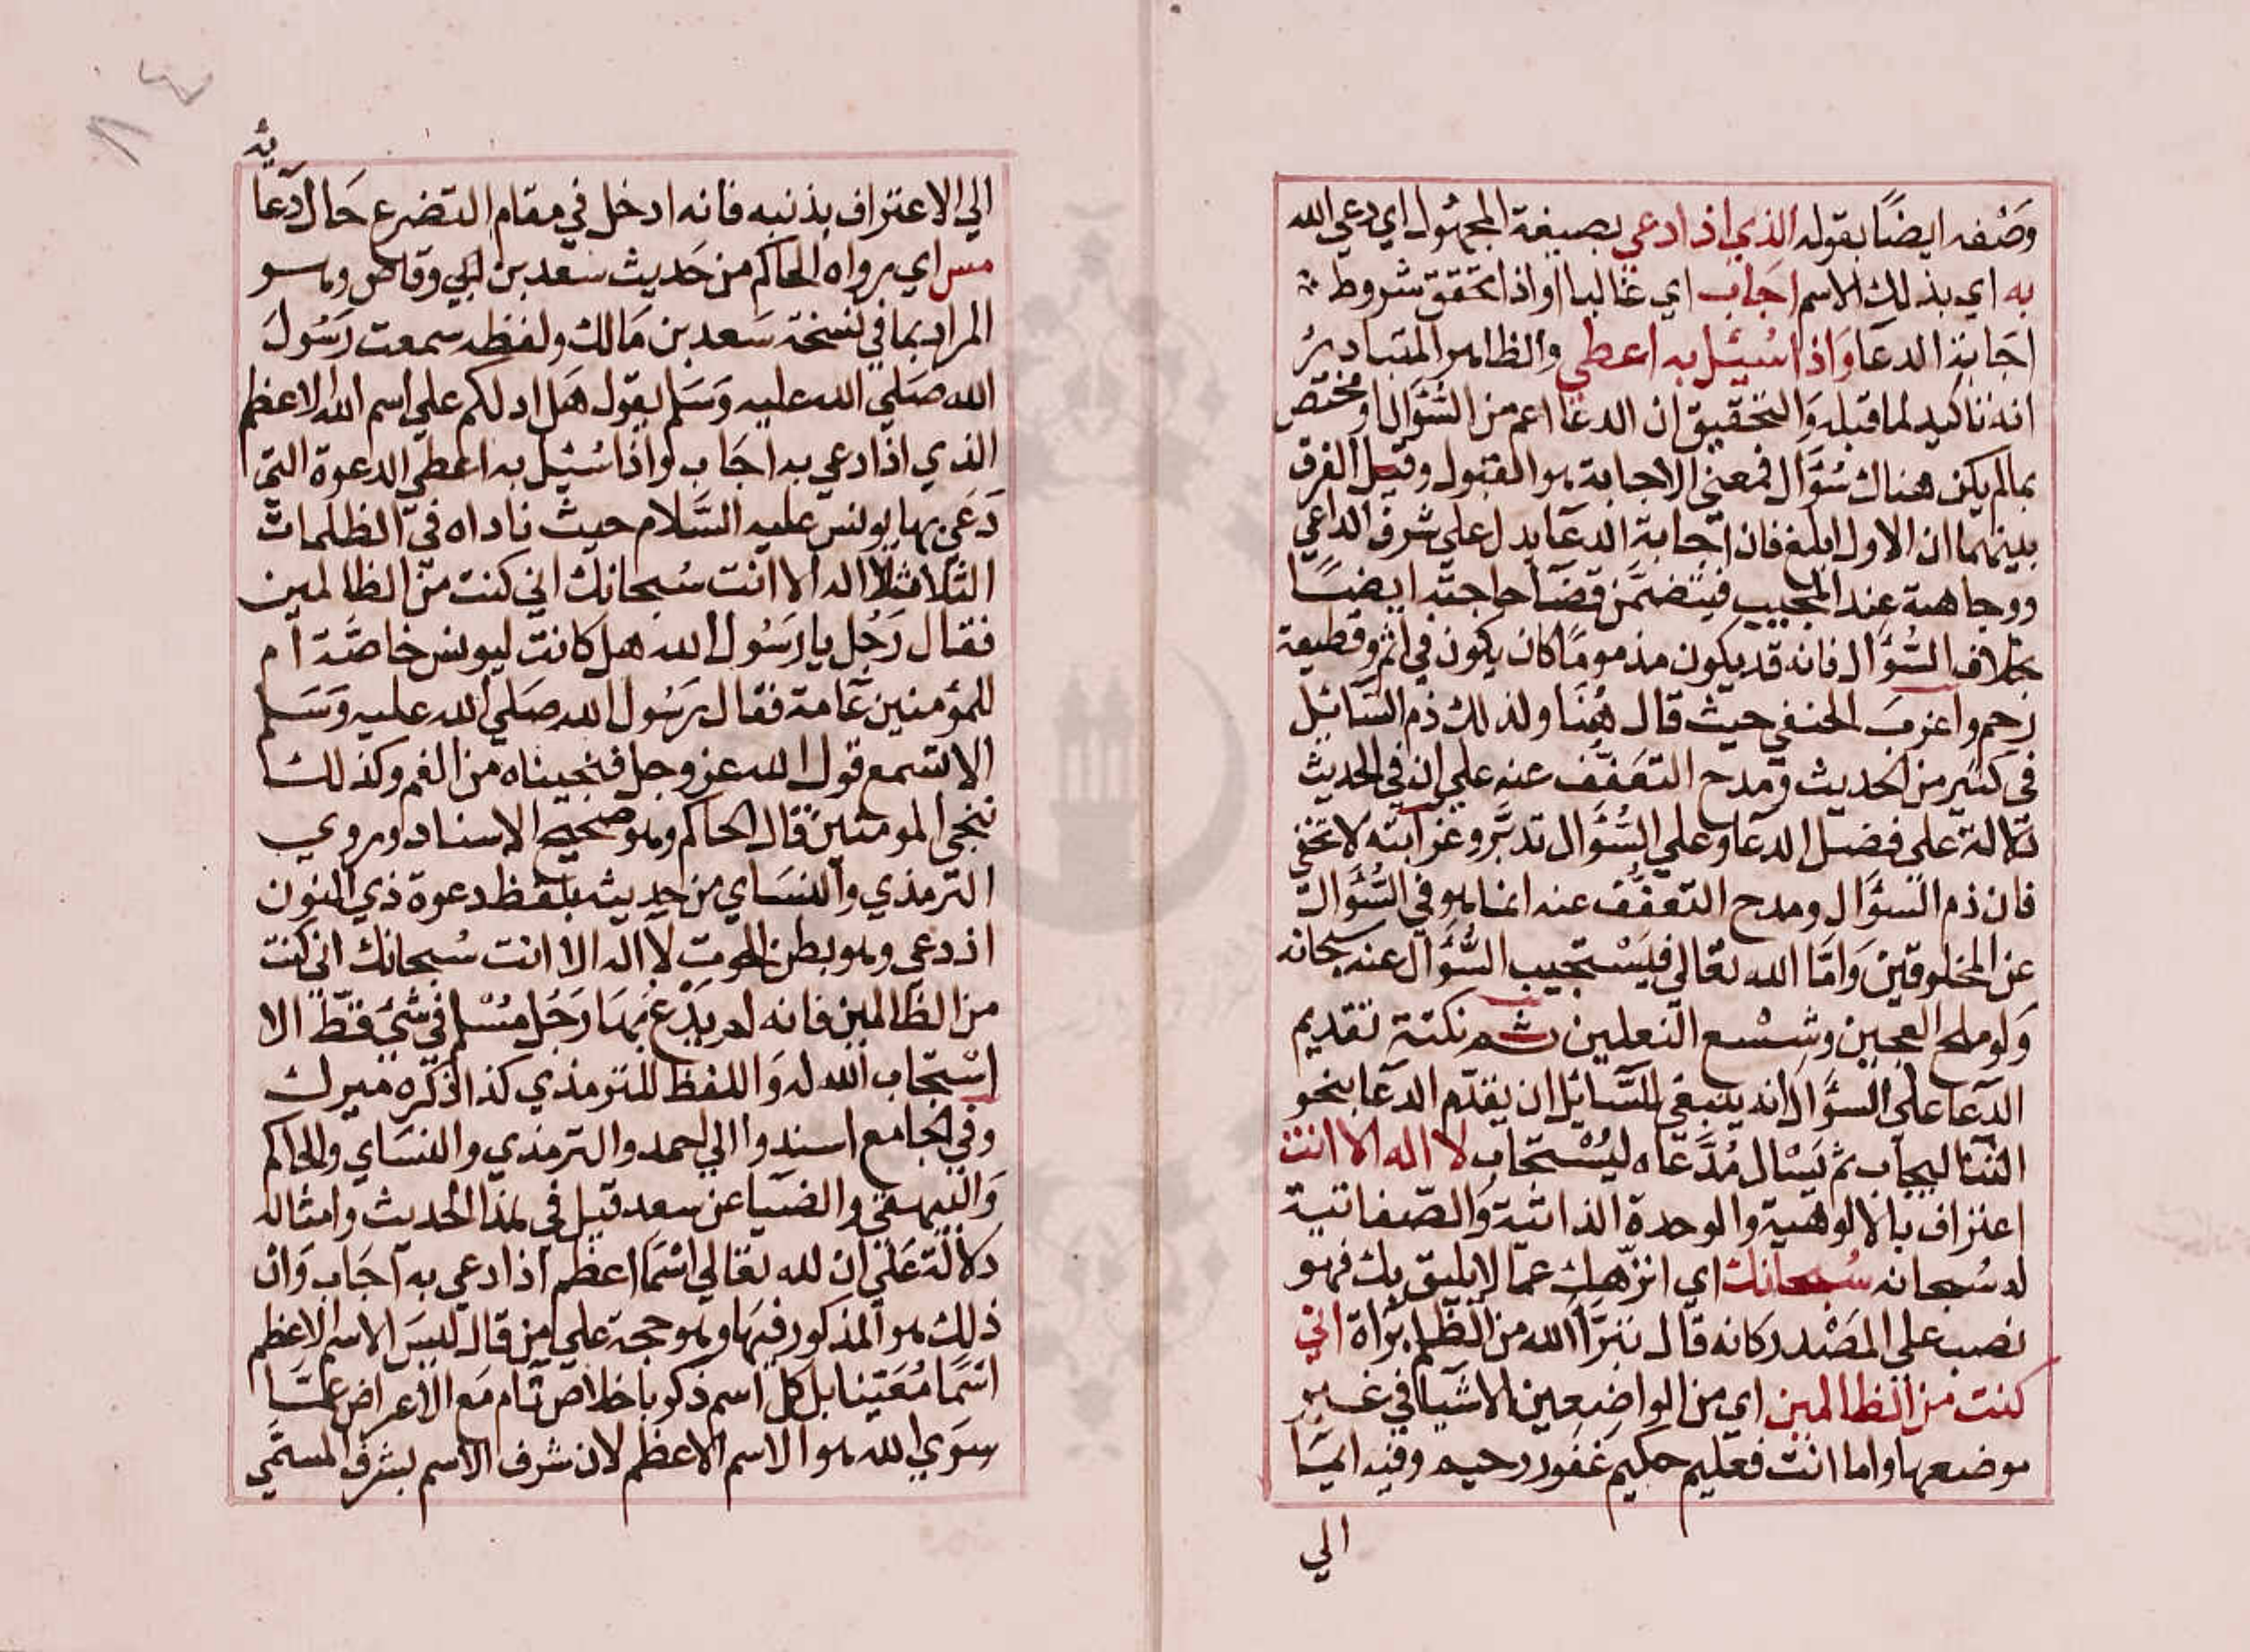 وصفه ايضًا بقوله الذي اذا دعي بصيغة المجهول اي دعي الله
به اي بذلك الاسم اجاب اي غالبا او اذا تحقق شروط
اجابة الدعا واذا سُئِل به اعطي والظاهر المتبادر
انه تاكيد لما قبله والتحقيق ان الدعا اعم من السُّؤَال او مختص
بمالم يكن هناك سُؤَال فمعني الاجابة هو القبول وقيل الفرق
بينهما ان الاول ابلغ فان اجابة الدعا يدل علي شرف الداعي
ووجاهته عند المجيب فيتضمن قضا حاجته ايضًا
بخلاف السُّؤَال فانه قد يكون مذمومًا كان يكون في اثم وقطيعة
رحم واغرب الحنفي حيث قال هُنَا ولذلك ذم السَّائل
في كثير من الحديث ومدح التعفّف عنه علي ان في الحديث
دَلالة علي فضل الدعا وعلي السُّؤَال تدبّر وغرابته لا تخفي
فان ذم السؤَال ومدح التعفّف عنه انما هو في السُّؤَال
عن المخلوقين وَامَّا الله تعالي فيَسْتجيب السُّؤَال عنه سبحانه
وَلو ملح العجين وشسْع النعلين ثم نكتة تقديم
الدّعا علي السؤَال انه ينبغي للسَّائل ان يقدّم الدعا بنحو
الثنا ليجاب ثم يَسْال مُدَّعَاه ليُسْتجَاب لا اله الا انت
اعتراف بالالوهية والوحدة الذاتية وَالصّفاتية
له سُبحانه سُبحانك اي انزّهك عمّا لا يليق بك فهو
نصب علي المصْدر كانه قال نبَرّا الله من الظلم برَاة اني
كنت من الظالمين اي من الواضعين الاشيَا في غير
موضعها واما انت فعليم حكيم غفور رحيم وفيه ايمَا
الي
الي الاعتراف بذنبه فانه ادخل في مقام التضرع حَال دعا
يه
مس اي رواه الحاكم من حَديث سعد بن ابي وقاص وهو
المراد بما في نسخة سَعد بن مَالك ولفظه سمعت رَسُول
الله صَلي الله عليه وَسَلم يقول هَل ادلكم علي اسم الله الاعظم
الذي اذا دعي به اجَاب واذا سُئِل به اعطي الدعوة التي
دَعي بها يونس عليه السَّلام حيث ناداه في الظلمات
الثلاث لا اله الا انت سُبحانك اني كنت من الظالمين
فقال رَجُل يا رَسُول الله هل كانت ليونس خاصَّة ام
للمؤمنين عَامة فقال رَسُول الله صَلي الله عليه وَسَلم
الا تسمع قول الله عز وجل فنجيناه من الغم وكذلك
ننجي المومنين قال الحاكم وهو صحيح الاسناد وروي
الترمذي والنسَاي من حديثه بلفظ دعوة ذي النون
اذ دعي وهو بطن الحوت لا اله الا انت سُبحانك اني كنت
من الظالمين فانه لم يَدْعُ بهَا رَجُل مُسْلم في شَيْ قطّ الا
اسْتجَاب الله له وَاللفظ للترمذي كذا ذكره ميرك
وفي الجامع اسندوا الي احمد والترمذي والنسَاي والحاكم
وَالبيهقي والضيَا عن سعد قيل في هذا الحديث وامثاله
دَلالة عَلي ان لله تعَالي اسْمًا اعظم اذا دعي به اجَاب وَان
ذلك هو المذكور فيهَا وهو حجة علي من قال ليسَ الاسم الاعظم
اسْمًا مُعَيّنا بل كل اسم ذكر باخلاص تام مَع الاعراض عمَّا
سوَي الله هو الاسم الاعظم لان شرف الاسم بشرف المسمّي